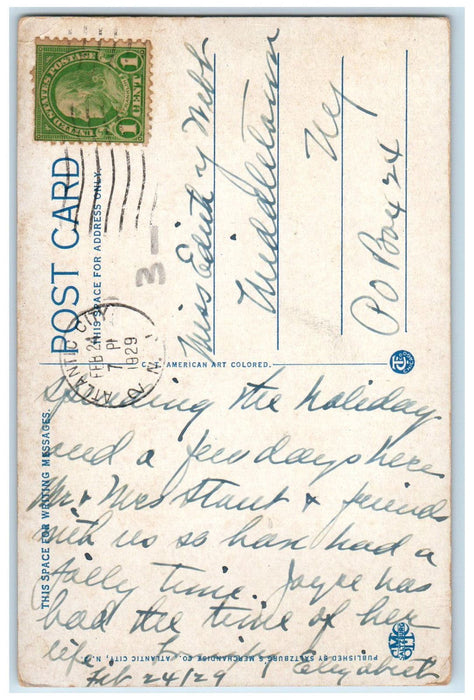 UNITED STATES POSTAGE
1 CENT 1
ATLANTIC CITY
FEB 24
7 PM
1929
N.J.
3-
POST CARD
THIS SPACE FOR ADDRESS ONLY.
Miss Edith Y Webb
Middletown
Ny
PO Box 24
C.T. AMERICAN ART COLORED.
THIS SPACE FOR WRITING MESSAGES.
Spending the holiday
and a few days here
Mr & Mrs Stout & friends
with us so have had a
jolly time. Joyce has
had the time of her
life
Elizabeth
Feb 24/29
PUBLISHED BY SALTZBURG'S MERCHANDISE CO., ATLANTIC CITY, N.J.